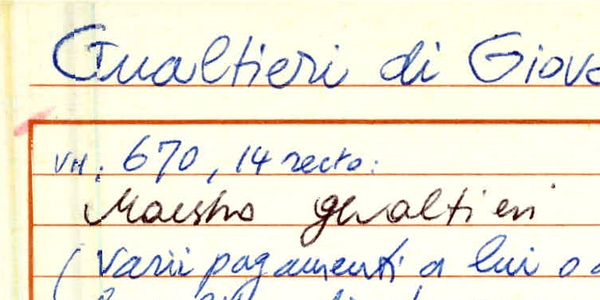 Gualtieri di Giova
VII: 670, 14 recto:
Maestro gualtieri
(Varii pagamenti a lui o a